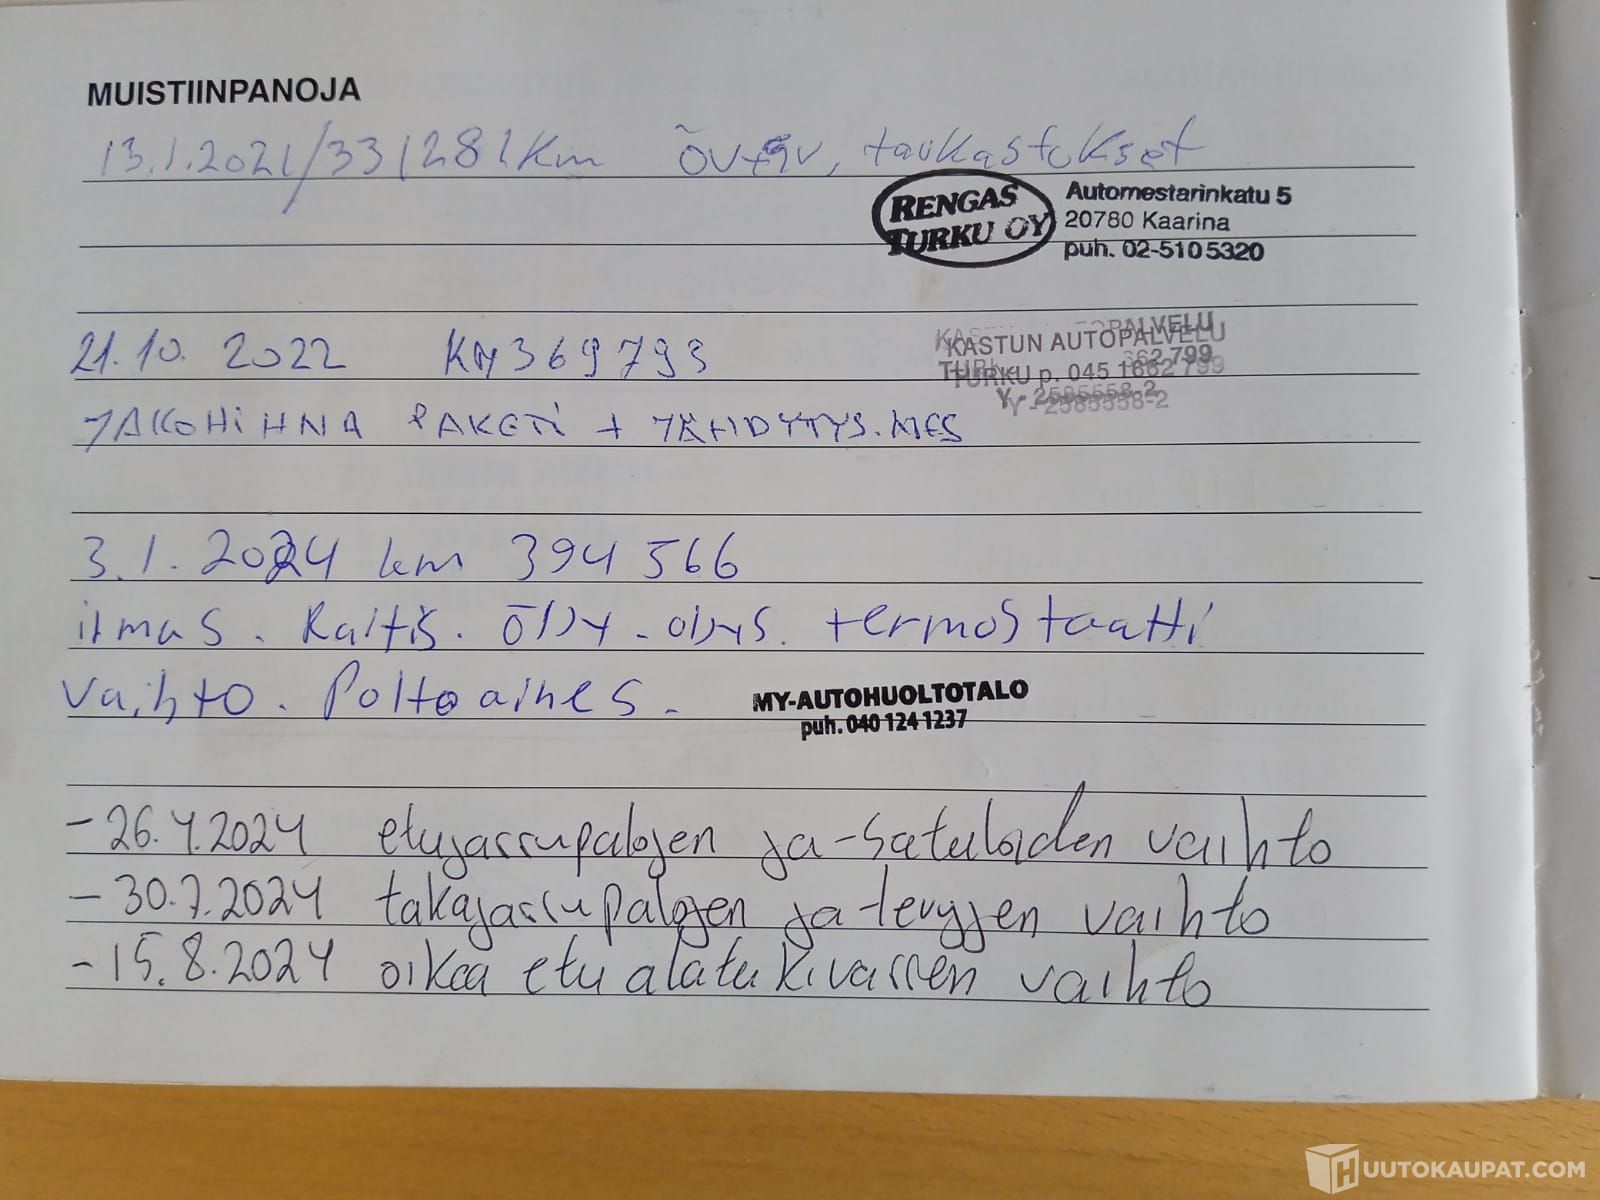 MUISTIINPANOJA
13.1.2021/331281km ÖV+SV, taukastukset
RENGAS TURKU OY
Automestarinkatu 5
20780 Kaarina
puh. 02-5105320
21.10. 2022 KM369793
KASTUN AUTOPALVELU
TURKU p. 045 1662 799
Y - 2585558-2
JAKOHIHNA PAKETI + JÄHDYTYS.NES
3.1.2024 km 394 566
ilmas. Raitis. öljy. öljys. termostaatti
vaihto. Poltoaines.
MY-AUTOHUOLTOTALO
puh. 040 124 1237
- 26.4.2024 etujarrupalojen ja-satuloiden vaihto
- 30.7.2024 takajarrupalojen ja-levyjen vaihto
- 15.8.2024 oikea etu alatukivarren vaihto
HUUTOKAUPAT.COM